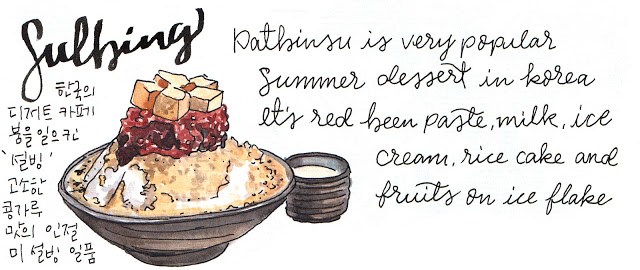 Sulbing
한국의
디저트 카페
붐을 일으킨
'설빙'
고소한
콩가루
맛의 인절
미 설빙 일품
Patbinsu is very popular
Summer dessert in korea
It's red been paste, milk, ice
cream, rice cake and
fruits on ice flake